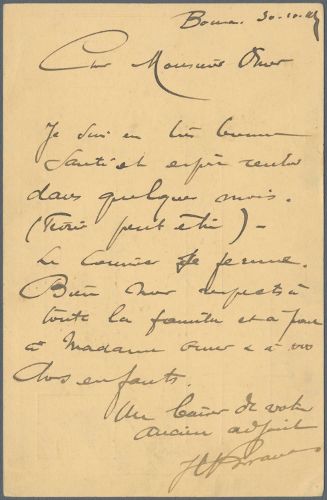 Boma. 30-10-
Cher Monsieur Omer
Je suis en très bonne
santé et espère rentrer
dans quelques mois.
(Février peut être) -
Le Courrier se ferme.
Bien mes respects à
toute la famille et a
à Madame Omer & à vos
chers enfants.
Un baiser de votre
ancien adjoint